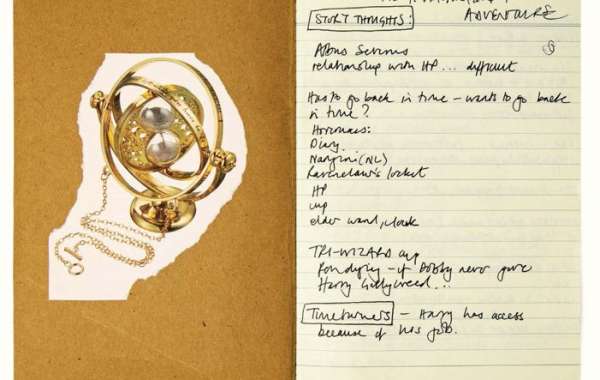 STORY THOUGHTS:
ADVENTURE
Albus Severus
relationship with HP... difficult
Has to go back in time – wants to go back
in time?
Horcruxes:
Diary
Nagini (NL)
Ravenclaw's locket
HP
cup
elder wand, cloak
TRI-WIZARD cup
– if Dobby never gave
Harry Gillyweed...
Timeturners – Harry has access
because of his job.